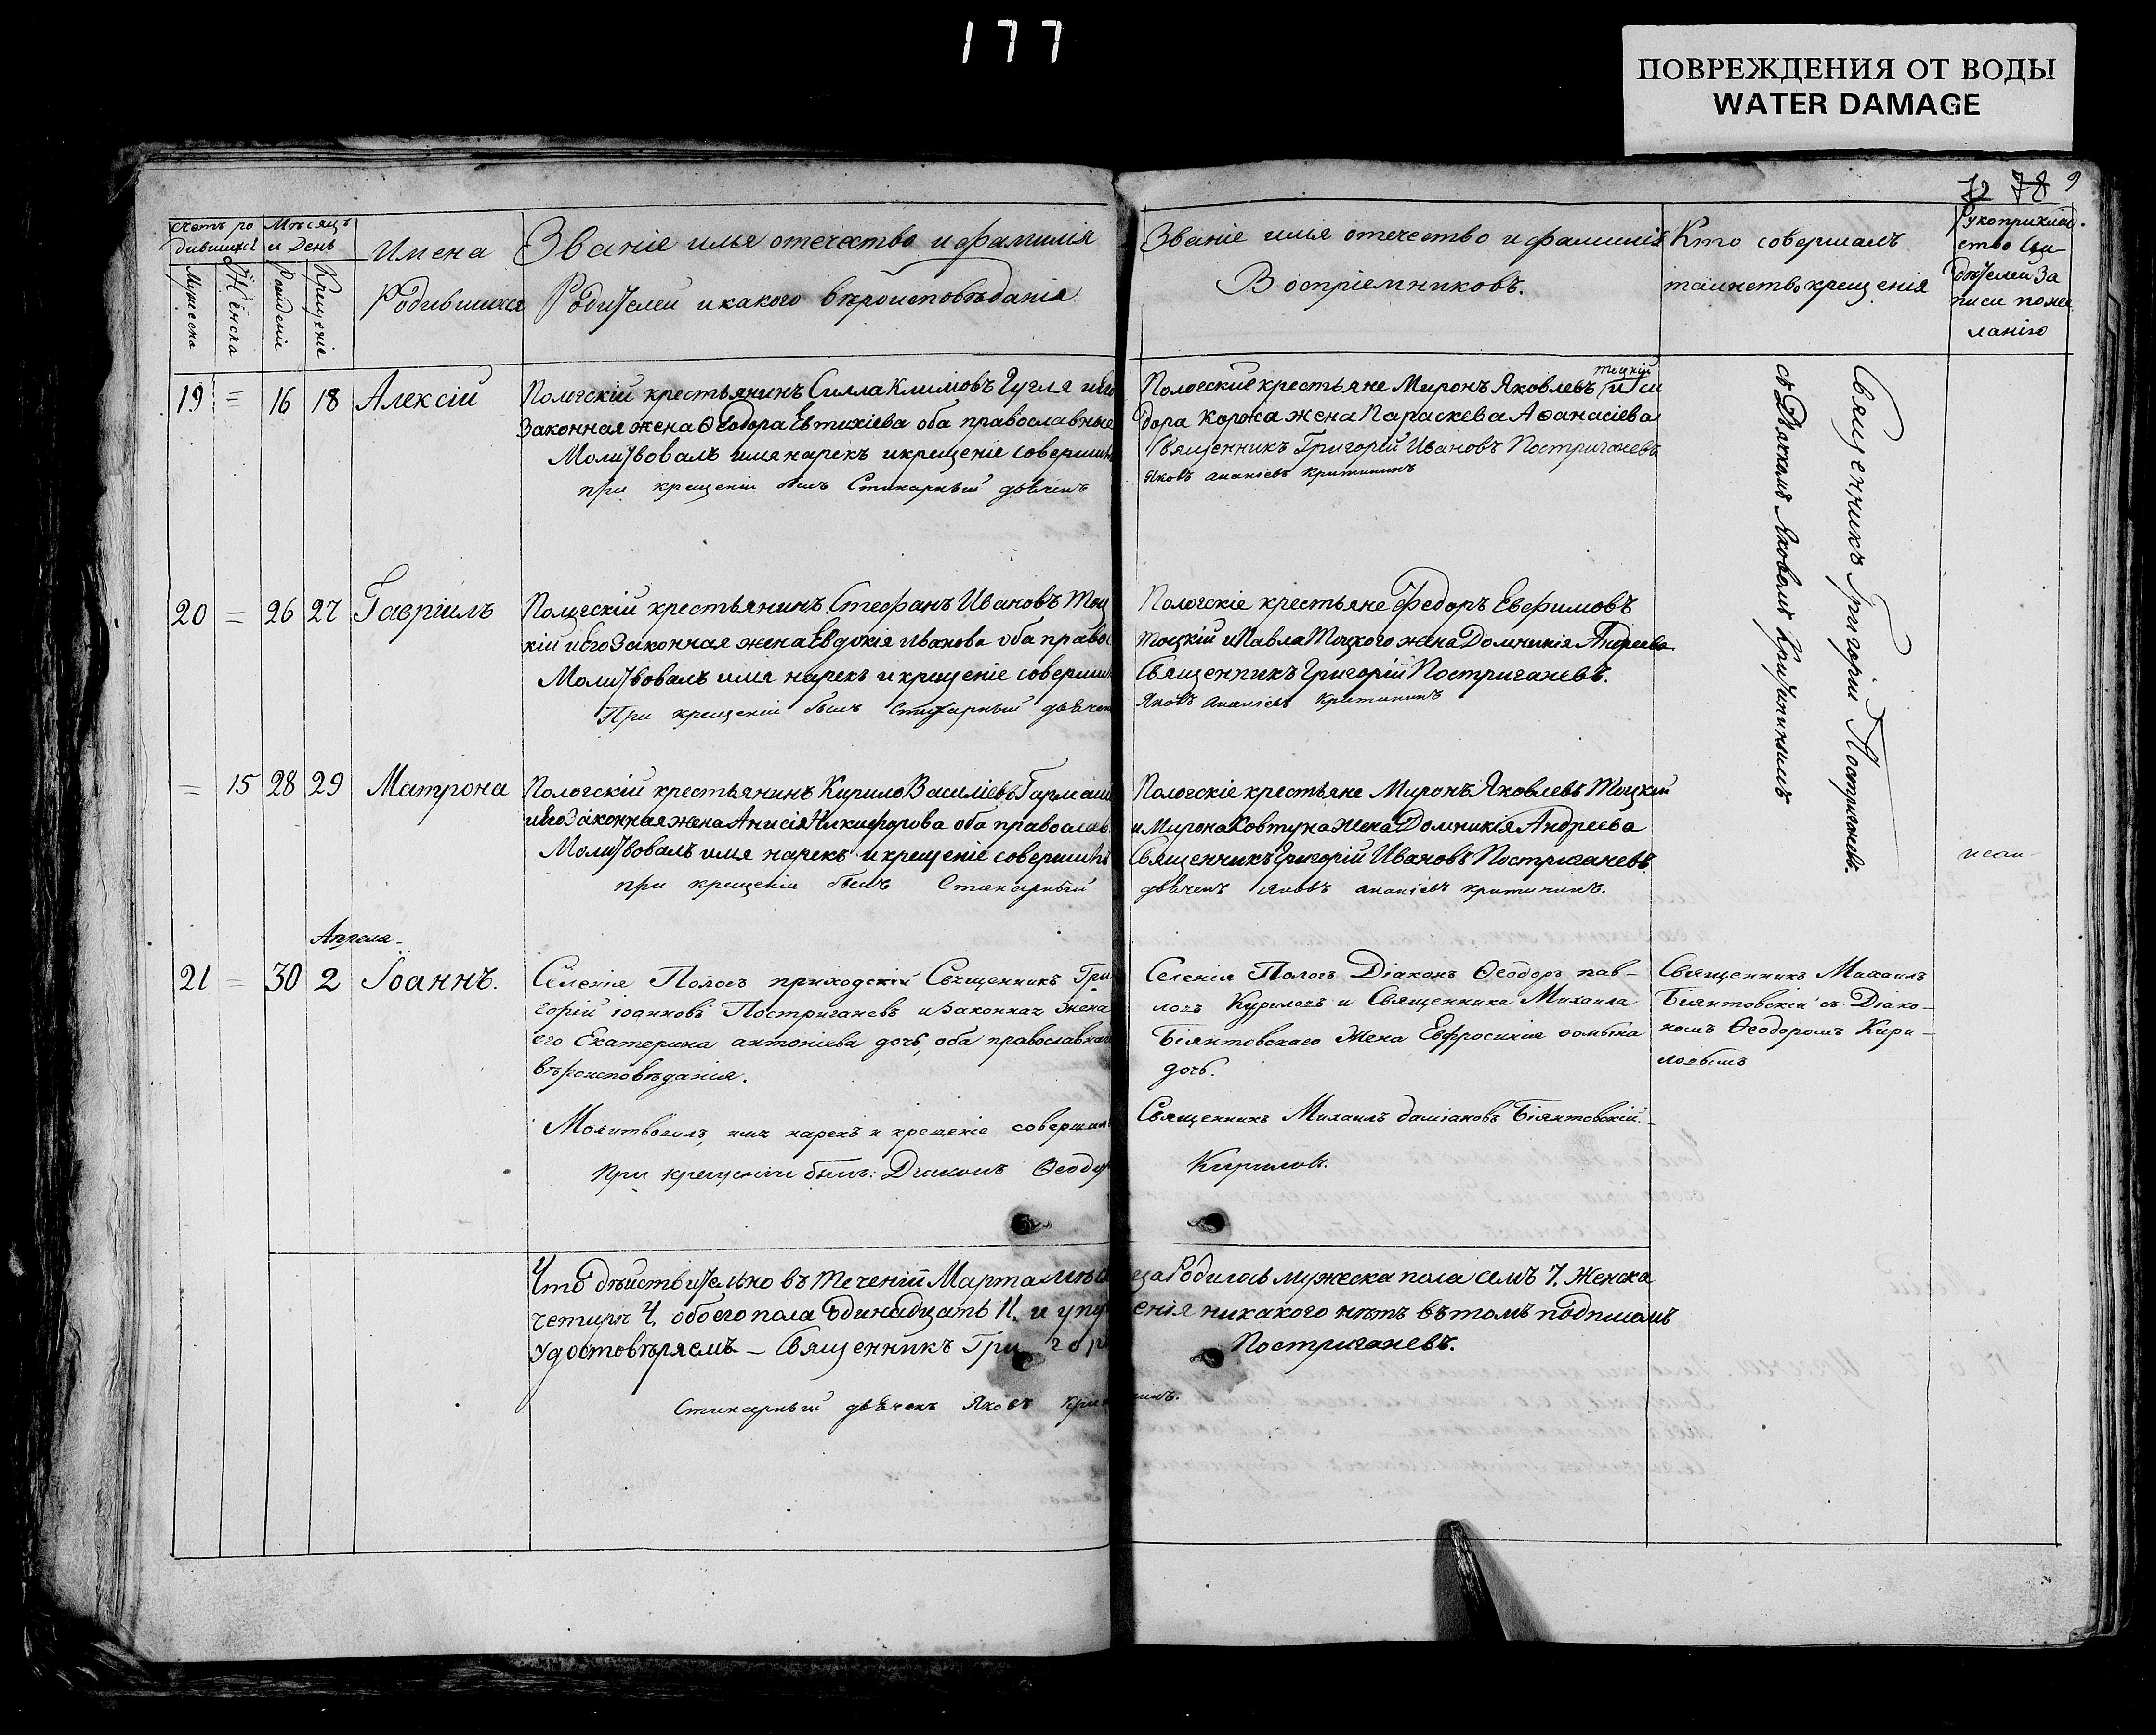 177
ПОВРЕЖДЕНИЯ ОТ ВОДЫ
WATER DAMAGE
72 78 9
Счетъ ро
дившихсѧ
Мужеска
Женска
Мѣсяцъ
и День
Рожденіе
Крещеніе
Имена
Родившихся
Званіе имя отечество и фамилія
Родителей и какого вѣроисповѣданія
Званіе имя отечество и фамилія
Воспріемниковъ.
Кто совершалъ
таинство крещенія
Рукоприклад-
ство сви-
дѣтелей За
писи по же
ланію
19 = 16 18 Алексій
Пологскій крестьянинъ Силла Климовъ Гугля и его
Законная жена Ѳеодора Евтихіева оба православные
Молитвовалъ имя нарекъ и крещеніе совершилъ
при крещеніи былъ Стихарный дьячекъ
тоцкій
Пологскіе крестьяне Миронъ Яковлевъ и Си
дора Коржа жена Параскева Аѳанасіева
Священникъ Григорій Ивановъ Постриганевъ
Яковъ Ананіевъ Критининъ
Священникъ Григорій Постриганевъ.
съ Дьячкомъ Яковомъ Критининымъ
20 = 26 27 Гавріилъ
Пологскій крестьянинъ Стефанъ Ивановъ Тоц
кій и Его Законная жена Евдокія Иванова оба правос
Молитвовалъ имя нарекъ и крещеніе совершилъ
При крещеніи былъ Стихарный дьячекъ
Пологскіе крестьяне Федоръ Евфимовъ
Тоцкій и Павла Тоцкого жена Домникія Андреева
Священникъ Григорій Постриганевъ.
Яковъ Ананіевъ Критининъ
= 15 28 29 Матрона
Пологскій крестьянинъ Кирило Василіевъ Гармаш
и Его Законная жена Анисія Никифорова оба православ
Молитвовалъ имя нарекъ и крещеніе совершилъ
при крещеніи былъ Стихарный
Пологскіе крестьяне Миронъ Яковлевъ Тоцкій
и Мирона Ковтуна жена Домникія Андреева
Священникъ Григорій Ивановъ Постриганевъ
дьячекъ Яковъ Ананіевъ Критининъ.
Апреля
21 = 30 2 Іоаннъ.
Селенія Пологъ приходскій Священникъ Гри
горій Іоанновъ Постриганевъ и Законная Жена
его Екатерина Антоніева дочь, оба православнаго
вѣроисповѣданія.
Молитвовалъ, имя нарекъ и крещеніе совершилъ
При крещеніи былъ: Диаконъ Ѳеодоръ
Селенія Пологъ Діаконъ Ѳеодоръ Пав-
ловъ Кириловъ и Священника Михаила
Біянтовскаго Жена Евфросинія Ѳомина
дочь.
Священникъ Михаилъ Даміановъ Біянтовскій.
Кириловъ.
Священникъ Михаилъ
Біянтовскій съ Діако-
номъ Ѳеодоромъ Кири-
ловымъ
Что дѣйствительно въ теченіи Марта мѣсяца Родилось мужеска пола семъ 7. Женска
четыры 4. обоего пола Одинадцать 11. и упущенія никакого нѣтъ въ томъ подписомъ
Удостовѣряемъ — Священникъ Григорій Постриганевъ.
Стихарный дьячекъ Яковъ Критининъ.